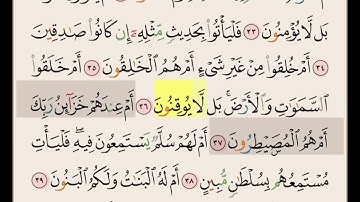 بَل لَّا يُؤْمِنُونَ ٣٣ فَلْيَأْتُوا۟ بِحَدِيثٍ مِّثْلِهِۦٓ إِن كَانُوا۟ صَـٰدِقِينَ
٣٤ أَمْ خُلِقُوا۟ مِنْ غَيْرِ شَىْءٍ أَمْ هُمُ ٱلْخَـٰلِقُونَ ٣٥ أَمْ خَلَقُوا۟
ٱلسَّمَـٰوَٰتِ وَٱلْأَرْضَ ۚ بَل لَّا يُوقِنُونَ ٣٦ أَمْ عِندَهُمْ خَزَآئِنُ رَبِّكَ
أَمْ هُمُ ٱلْمُصَۣيْطِرُونَ ٣٧ أَمْ لَهُمْ سُلَّمٌ يَسْتَمِعُونَ فِيهِ ۖ فَلْيَأْتِ
مُسْتَمِعُهُم بِسُلْطَـٰنٍ مُّبِينٍ ٣٨ أَمْ لَهُ ٱلْبَنَـٰتُ وَلَكُمُ ٱلْبَنُونَ ٣٩